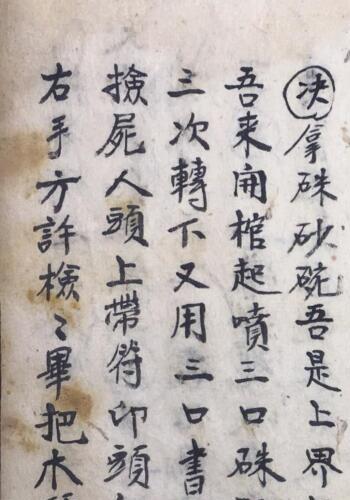 决拿硃砂碗吾是上界
吾来開棺起噴三口硃
三次轉下又用三口書
撿屍人頭上帶符印頭
右手方許檢〻畢把木